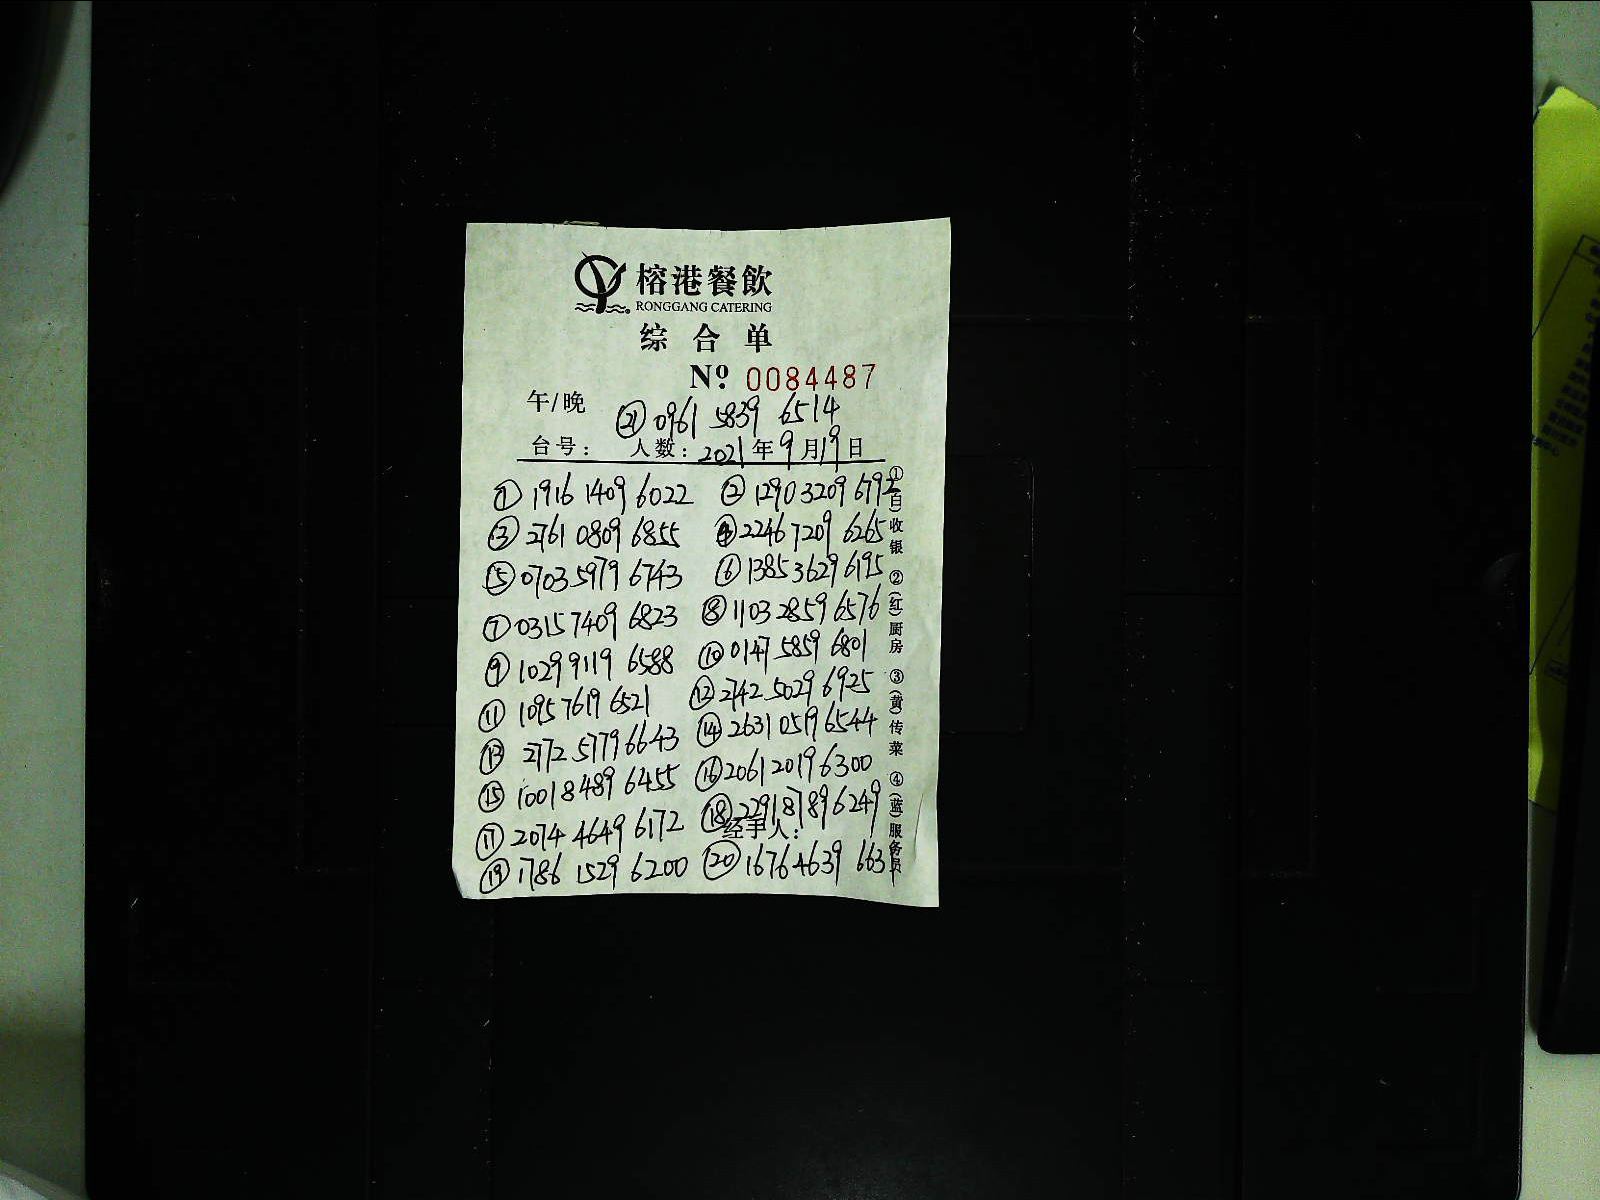 榕港餐飲
RONGGANG CATERING
综合单
Nº 0084487
午/晚
㉑ 0961 5839 6514
台号: 人数: 2021年9月19日
① 1916 1409 6022 ② 1290 3209 6792
③ 2761 0809 6855 ④ 2246 7209 6265
⑤ 0703 5979 6743 ⑥ 1385 3629 6195
⑦ 0315 7409 6823 ⑧ 1103 2859 6576
⑨ 1029 9119 6588 ⑩ 0147 5859 6801
⑪ 1095 7619 6521 ⑫ 2742 5029 6925
⑬ 2172 5779 6643 ⑭ 2631 0519 6544
⑮ 1001 8489 6455 ⑯ 2061 2019 6300
⑰ 2074 4649 6172 ⑱ 2291 8789 6249
经手人:
⑲ 1786 1529 6200 ⑳ 1676 4639 663
①(白)收银 ②(红)厨房 ③(黄)传菜 ④(蓝)服务员